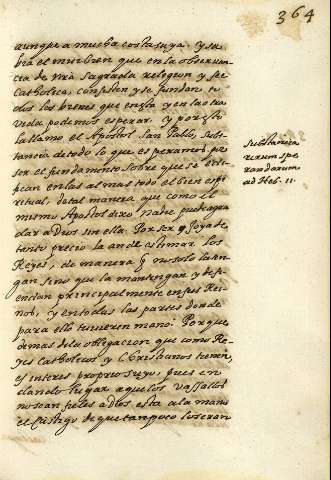 364
aunque a mucha costa suya. Y sa
bia el muy bien que en la observan
cia de nra sagrada religion y fee
Catholica, consisten y se fundan to
dos los bienes que en esta y en la otra
vida podemos esperar. y por esto
la llamo el Apostol San Pablo, Subs
tancia de todo lo que esperamos, por
ser el fundamento sobre que se edi
fican en las almas todo el bien espi
ritual, de tal manera que como el
mismo Apostol dixo nadie puede agra
dar a Dios sin ella. Por ser joya de
tanto precio la an de estimar los
Reyes, de manera q no solo la ten
gan sino que la mantengan y defi
endan principalmente en sus Rei
nos, y en todas las partes donde
para ello tuvieren mano. Porque
demas de la obligacion que como Re
yes Catholicos y Christianos tienen,
es interes proprio suyo, pues en
dando lugar a que los vassallos
no sean fieles a Dios esta a la mano
el castigo de que tanpoco lo seran
Substantia
rerum spe
randarum
ad Heb. 11.